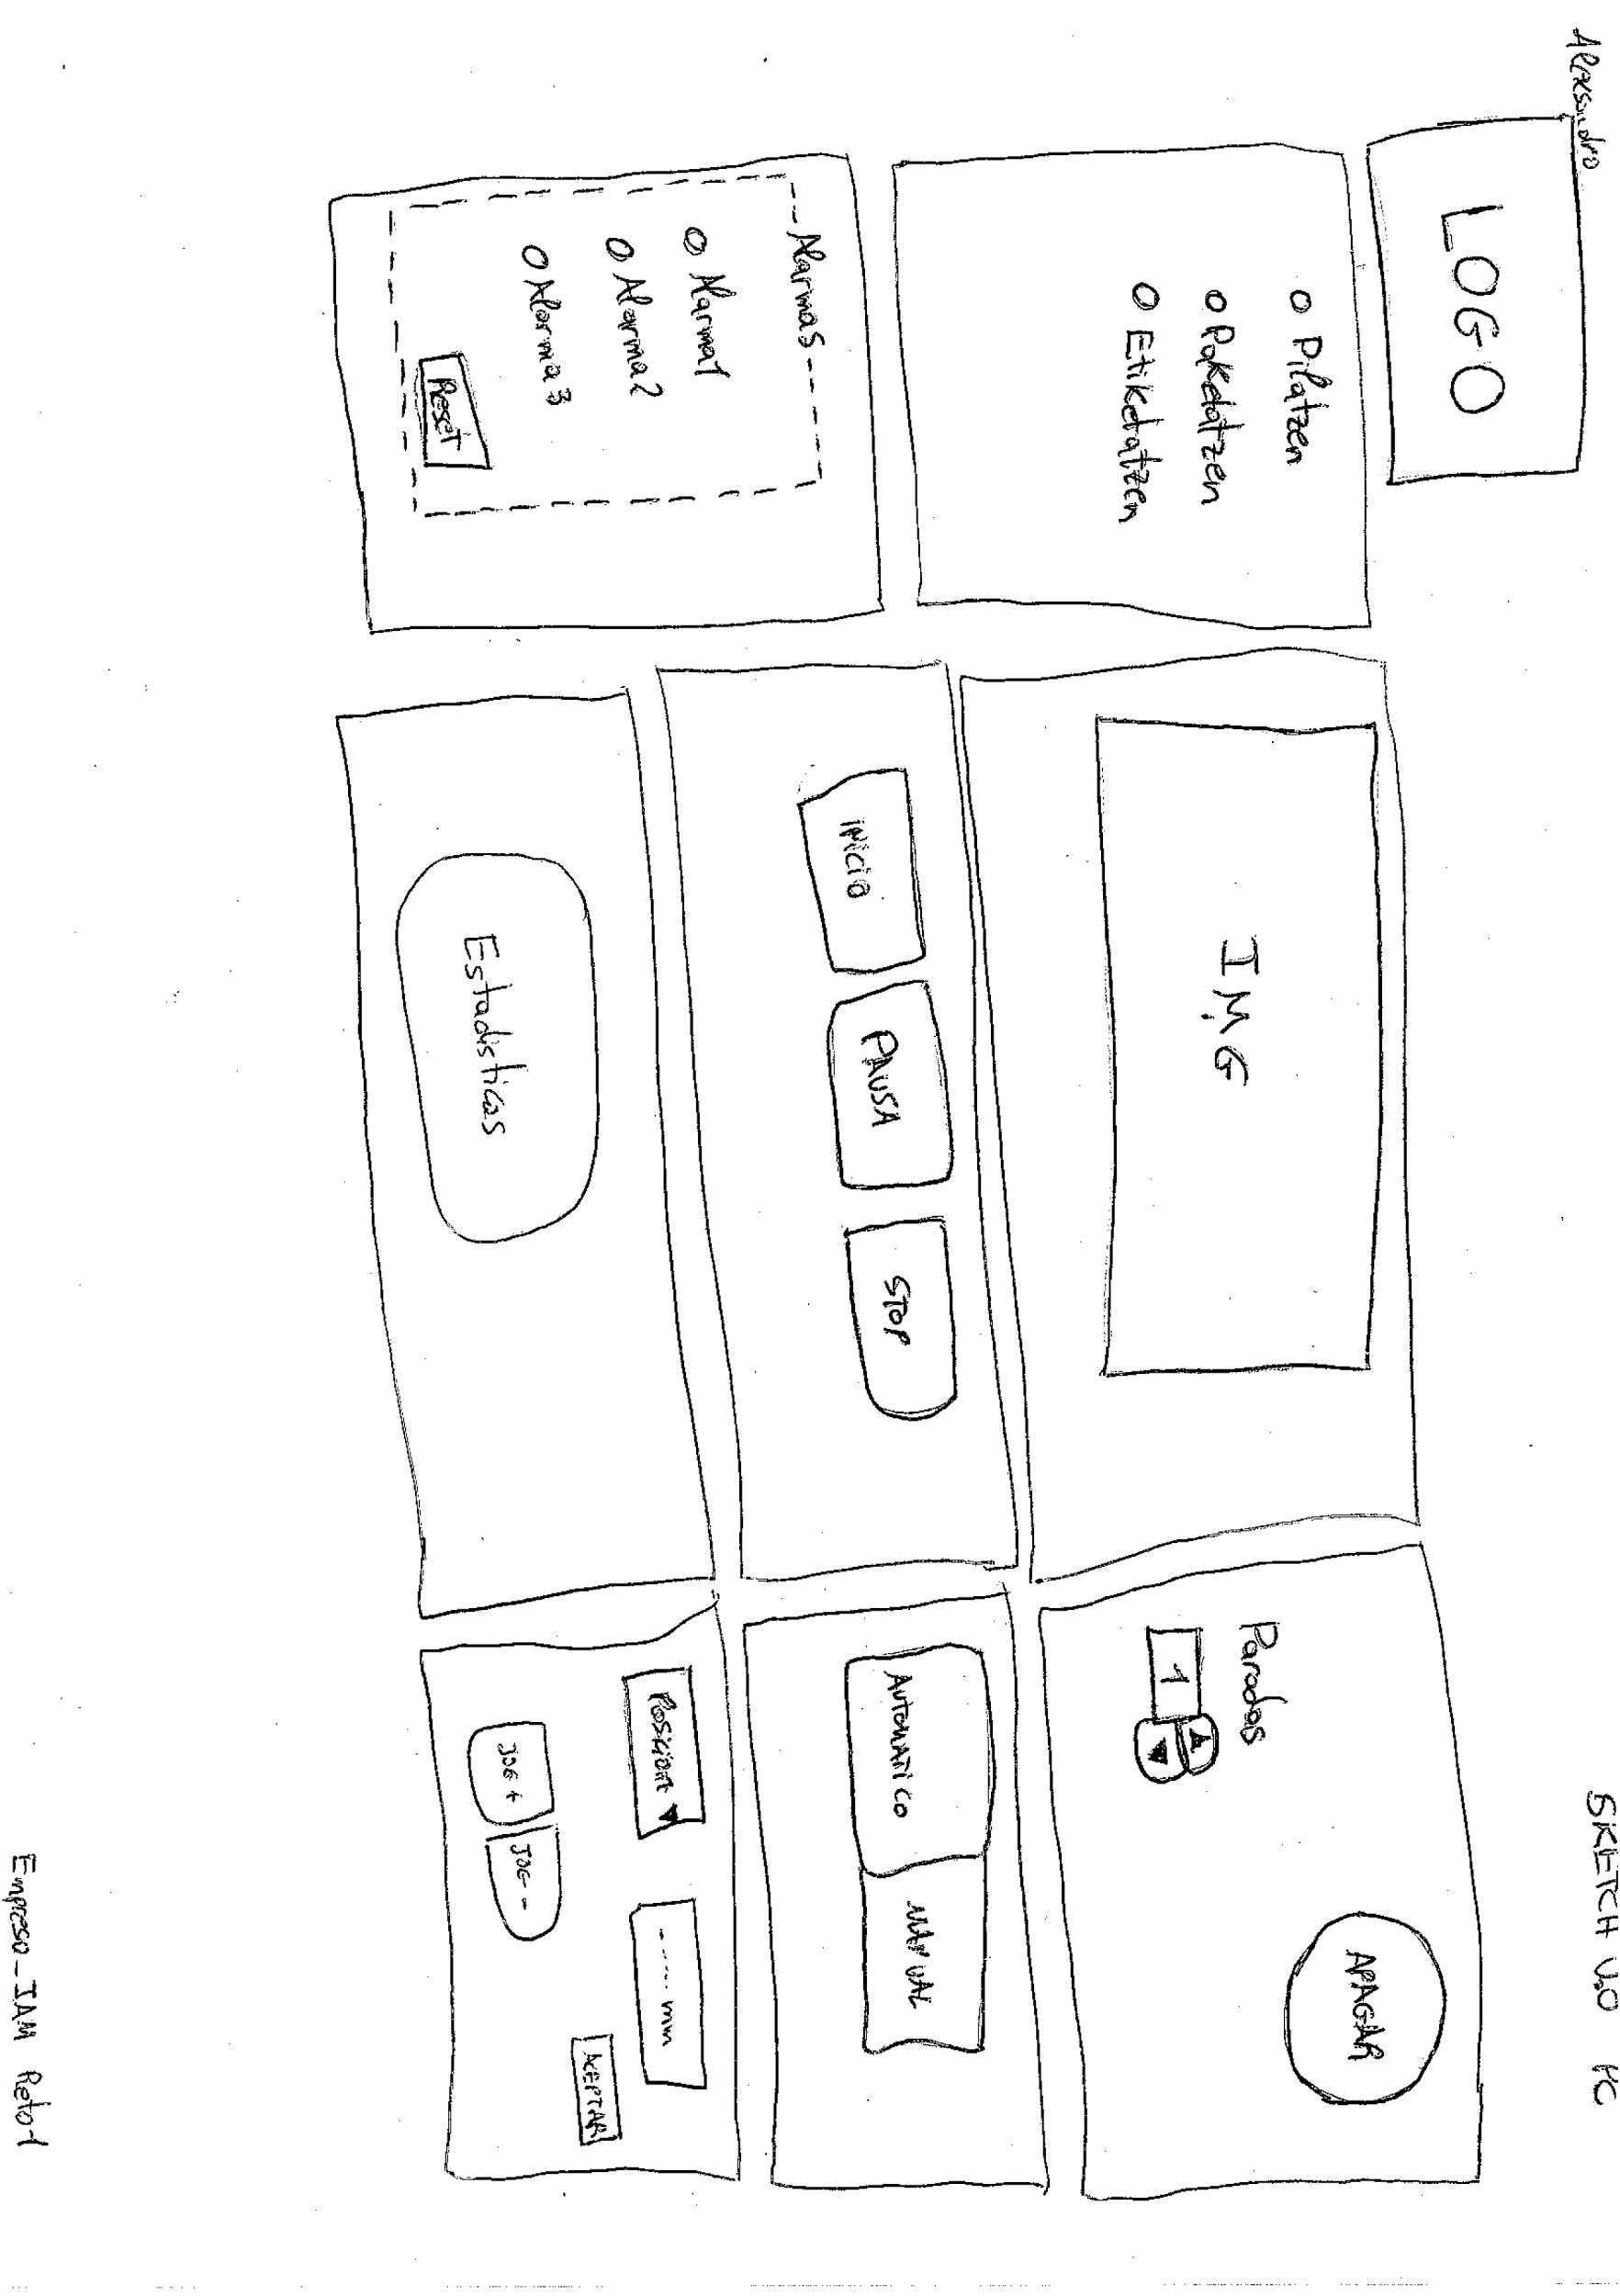 Aleksandro
SKETCH V.0 PC
LOGO
Pilatzen
Paketatzen
Etiketatzen
Alarmas
Alarma1
Alarma2
Alarma3
Reset
IMG
INICIO
PAUSA
STOP
Estadisticas
Paradas
1
APAGAR
AUTOMATICO
MANUAL
mm
JOG +
JOG -
ACEPTAR
Empresa-IAM Reto-1